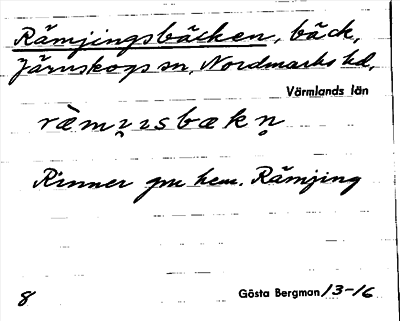 Rämjingsbäcken, bäck,
Järnskogs sn, Nordmarks hd,
Värmlands län
Rinner gm hem. Rämjing
8
Gösta Bergman 13-16